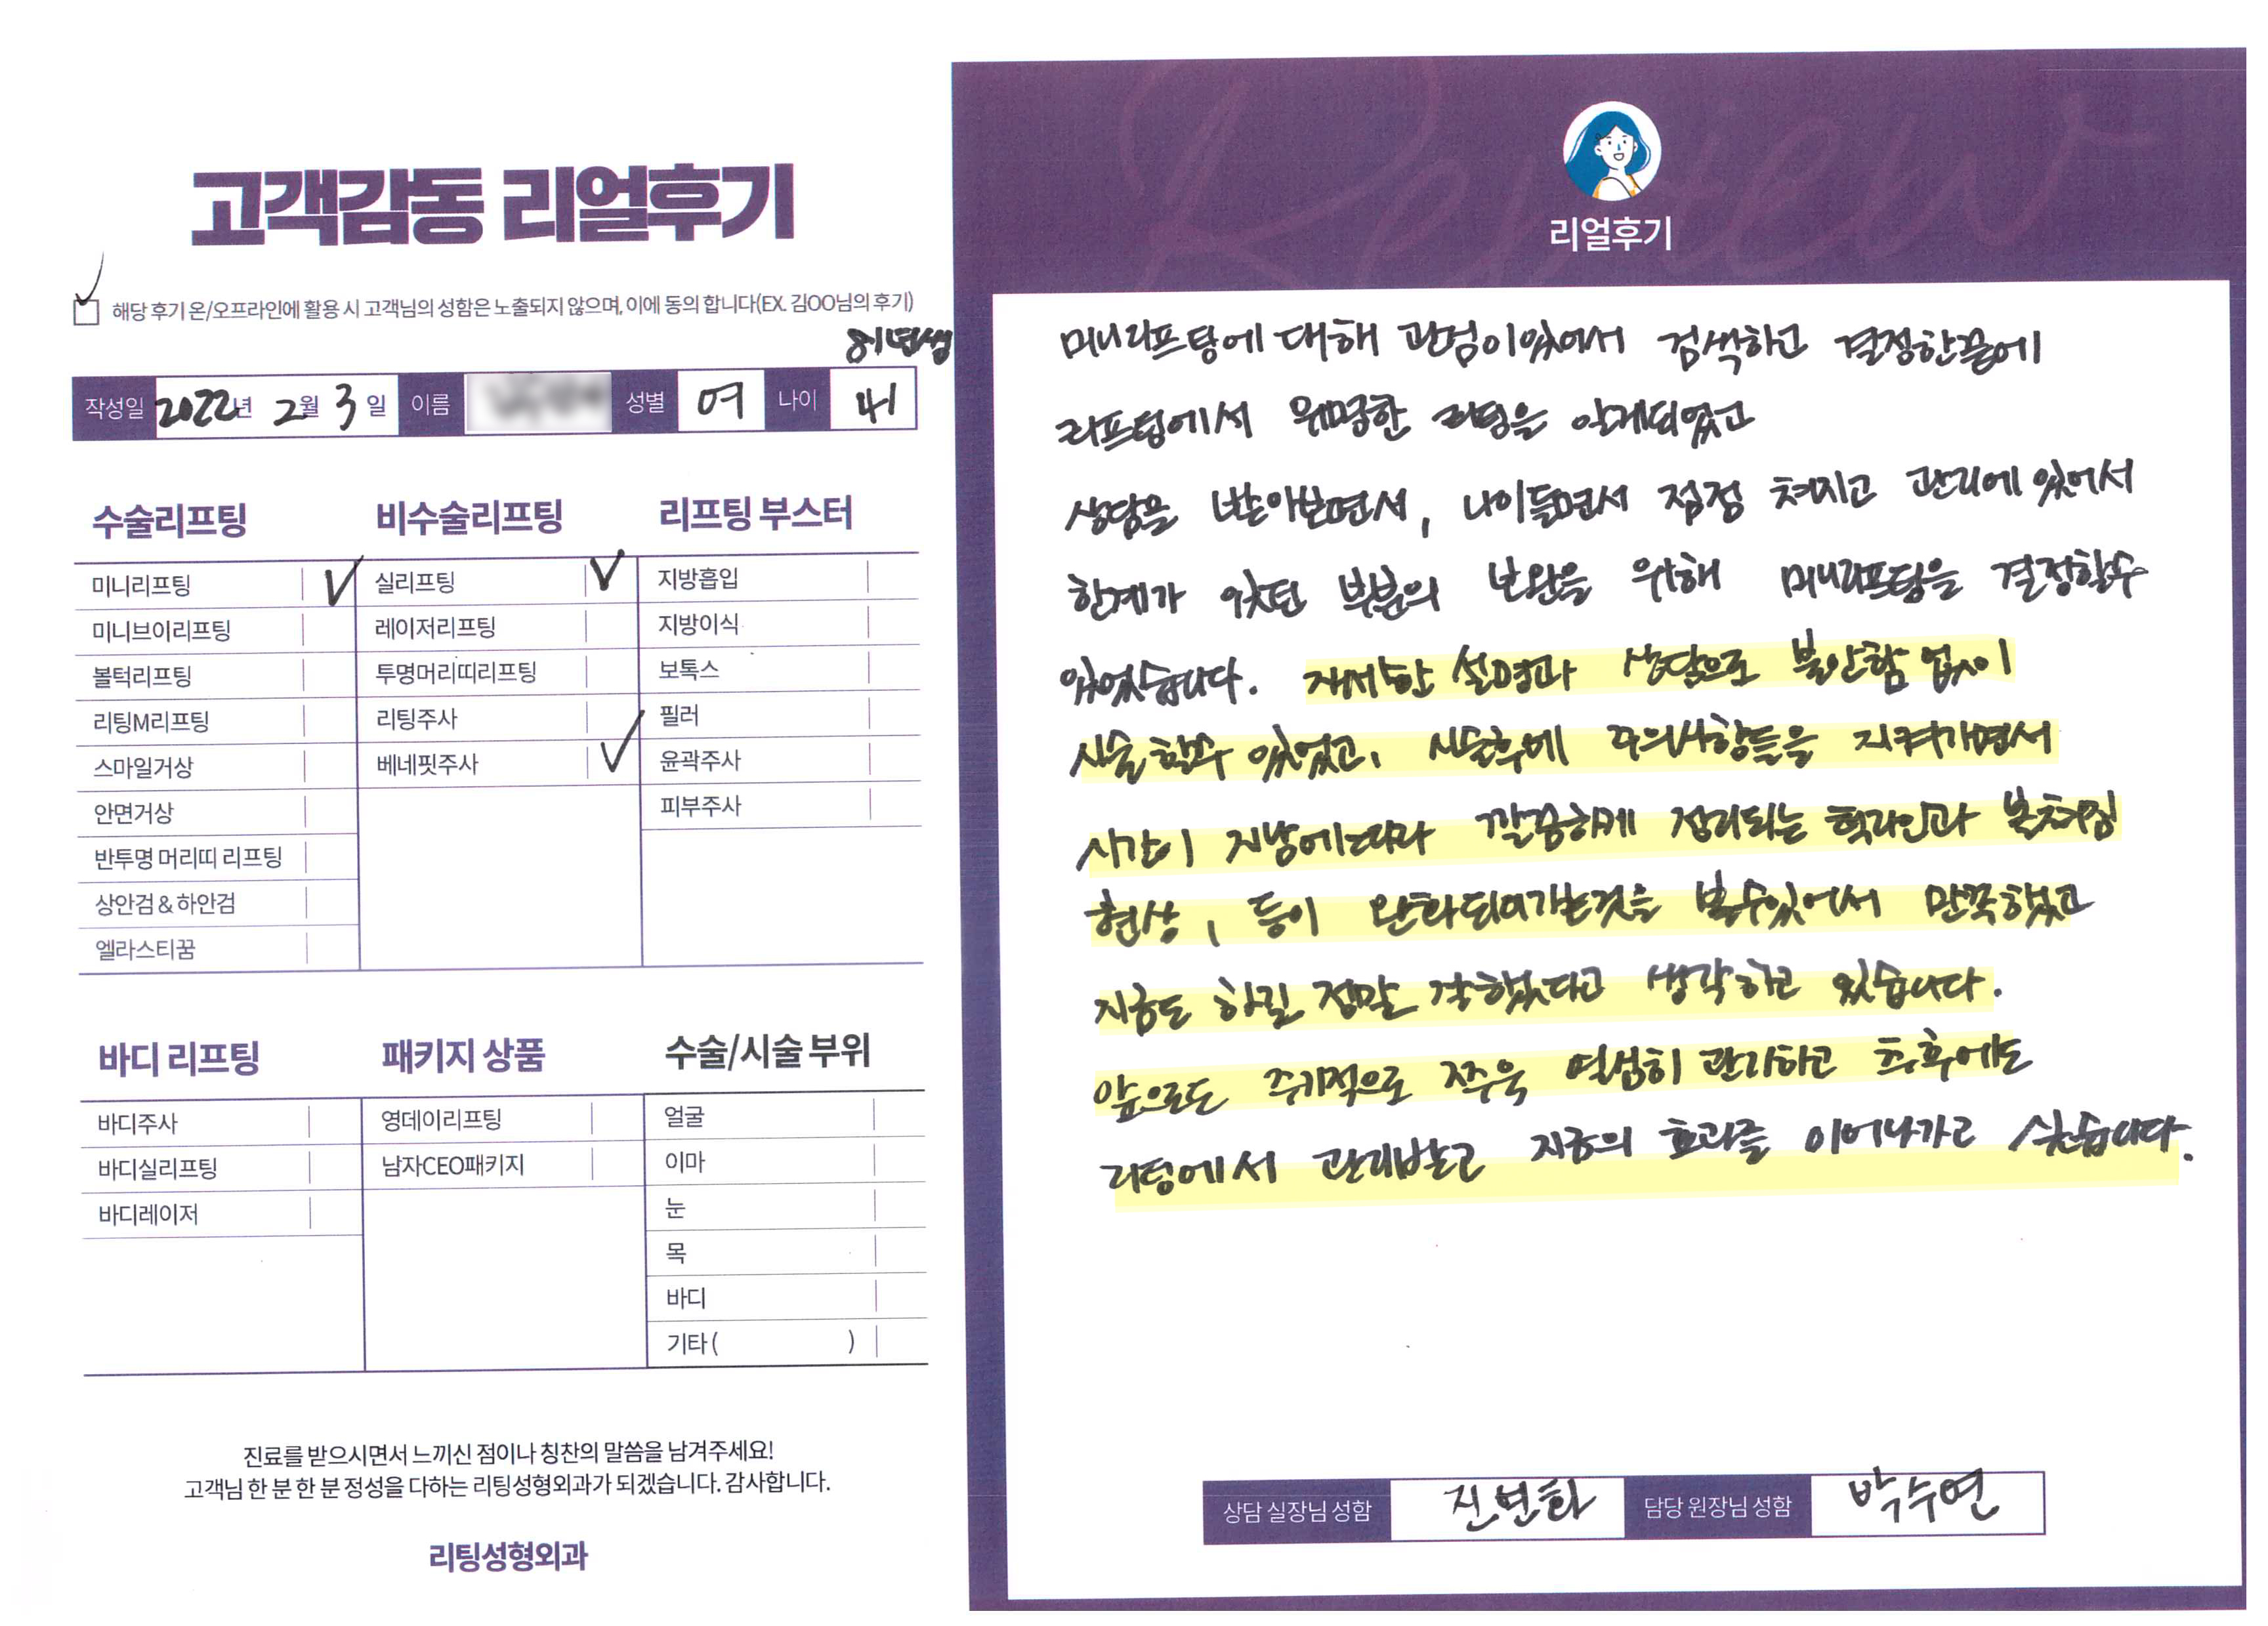 고객감동 리얼후기
해당 후기 온/오프라인에 활용 시 고객님의 성함은 노출되지 않으며, 이에 동의 합니다(EX. 김OO님의 후기)
81년생
작성일 2022년 2월 3일 이름 성별 여 나이 41
수술리프팅
미니리프팅
미니브이리프팅
볼턱리프팅
리팅M리프팅
스마일거상
안면거상
반투명 머리띠 리프팅
상안검 & 하안검
엘라스티꿈
비수술리프팅
실리프팅
레이저리프팅
투명머리띠리프팅
리팅주사
베네핏주사
리프팅 부스터
지방흡입
지방이식
보톡스
필러
윤곽주사
피부주사
바디 리프팅
바디주사
바디실리프팅
바디레이저
패키지 상품
영데이리프팅
남자CEO패키지
수술/시술 부위
얼굴
이마
눈
목
바디
기타 ( )
진료를 받으시면서 느끼신 점이나 칭찬의 말씀을 남겨주세요!
고객님 한 분 한 분 정성을 다하는 리팅성형외과가 되겠습니다. 감사합니다.
리팅성형외과
Review
리얼후기
미니리프팅에 대해 관심이있어서 검색하고 결정한끝에
리프팅에서 유명한 리팅을 알게되었고
상담을 받아보면서, 나이들면서 점점 쳐지고 관리에 있어서
한계가 있던 부분의 보완을 위해 미니리프팅을 결정할수
있었습니다. 자세한 설명과 상담으로 불안함 없이
시술할수 있었고, 시술후에 주의사항들을 지켜가면서
시간이 지남에따라 깔끔하게 정리되는 턱라인과 볼쳐짐
현상, 등이 완화되어가는것을 볼수있어서 만족했고
지금도 하길 정말 잘했다고 생각하고 있습니다.
앞으로도 주기적으로 쭈욱 열심히 관리하고 추후에도
리팅에서 관리받고 지금의 효과를 이어나가고 싶습니다.
상담 실장님 성함 진변화 담당 원장님 성함 박수연